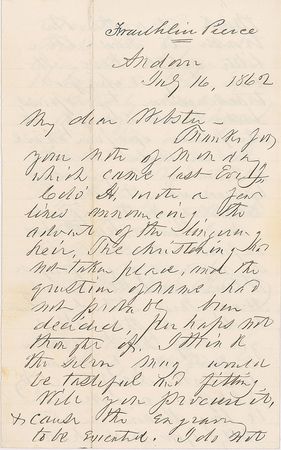 Franklin Pierce
Andover
July 16, 1862
My dear Webster -
Thanks for
your note of Monday
which came last Eveg
Colo H. wrote a few
lines announcing the
advent of the lingering
heir. The christening has
not taken place, and the
question of name had
not probably been
decided, perhaps not
thought of. I think
the silver mug would
be tasteful and fitting.
Will you procure it,
& cause the engraving
to be executed. I do not